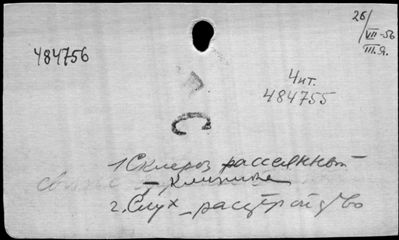 26/VII-56
III.Я.
484756
Чит.
484755
С
1 Склероз рассеянный
- клиника
2. Слух - расстройство